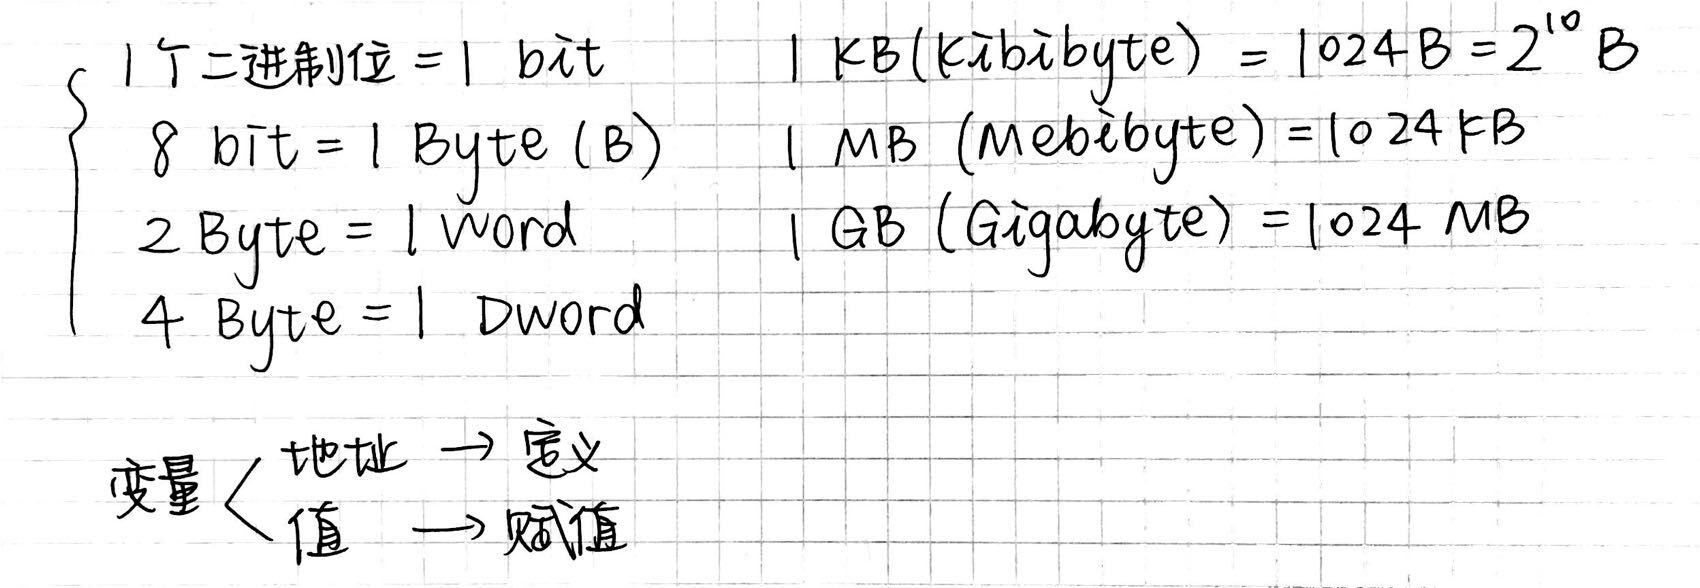 1个二进制位 = 1 bit
8 bit = 1 Byte (B)
2 Byte = 1 Word
4 Byte = 1 Dword
1 KB (Kibibyte) = 1024 B = 2¹⁰ B
1 MB (Mebibyte) = 1024 KB
1 GB (Gigabyte) = 1024 MB
变量
地址 → 定义
值 → 赋值